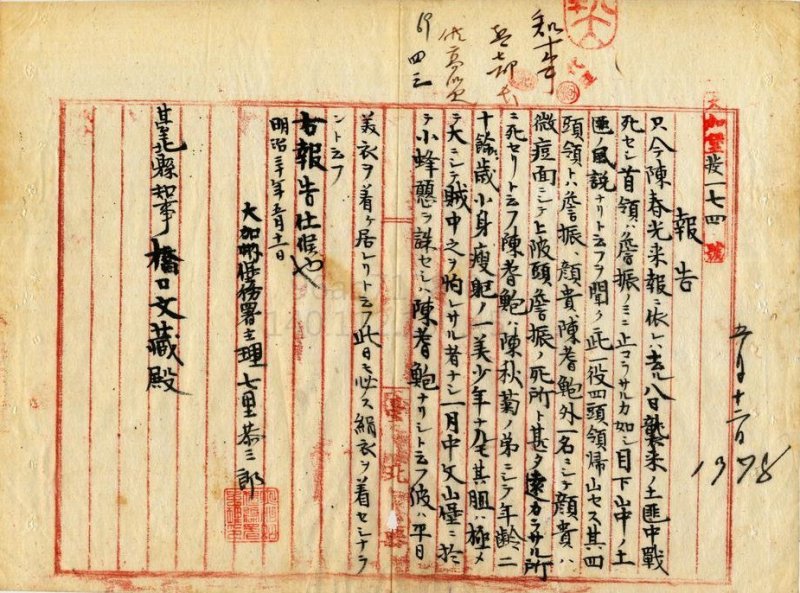 大加蚋發一七四號
報告
只今陳春光来報ニ依レハ去ル八日襲来ノ土匪中戰
死セシ首領ハ詹振ノミニ止マラサルカ如シ目下山中ノ土
匪ノ風説ナリト云フヲ聞クニ此一役四頭領帰山セス其四
頭領トハ詹振、顔貴、陳耆鮑外一名ニシテ顔貴ハ
微痘面ニシテ上陂頭詹振ノ死所ト甚タ遠カラサル所
ニ死セリト云フ陳耆鮑ハ陳秋菊ノ弟ニシテ年齢二
十餘歳小身瘦躯ノ一美少年ナルモ其胆ハ極メ
テ大ニシテ賊中之ヲ怕レサル者ナシ一月中文山堡ニ於
テ小蜂憩ヲ誅セシハ陳耆鮑ナリシト云フ彼ハ平日
美衣ヲ着ケ居レリト云フ此日モ必ス絹衣ヲ着セシナラ
ントエフ
右報告仕候也
明治三十年五月十一日
大加蚋保務署主理 七里恭三郎
臺北縣知事 橋口文藏殿
五月十二日
1378
知事
69
四三